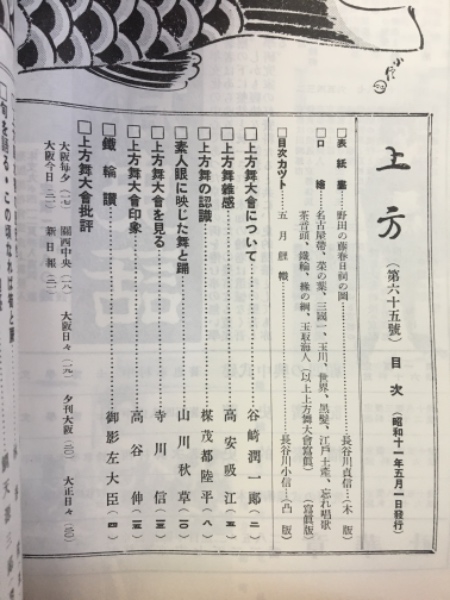 上方（第六十五號）目次（昭和十一年五月一日發行）
□表紙畫……野田の藤春日祠の圖……長谷川貞信…（木版）
□口繪……名古屋帶、菜の葉、三國一、玉川、世界、黑髮、江戸土產、忘れ唱歌
茶音頭、鐵輪、綠の綱、玉取海人（以上上方舞大會寫眞）（寫眞版）
□目次カツト……五月……長谷川小信…（凸版）
□上方舞大會について……谷崎潤一郎（二）
□上方舞雜感……高安吸江（五）
□上方舞の認識……楳茂都陸平（八）
□素人眼に映じた舞と踊……山川秋草（一〇）
□上方舞大會を見る……寺川信
□上方舞大會印象……高谷伸
□鐵輪讃……御影左大臣
□上方舞大會批評
大阪每夕（二七）關西中央（二八）大阪日々（二九）夕刊大阪（三〇）大正日々（三〇）
大阪今日（三一）新日報（三一）